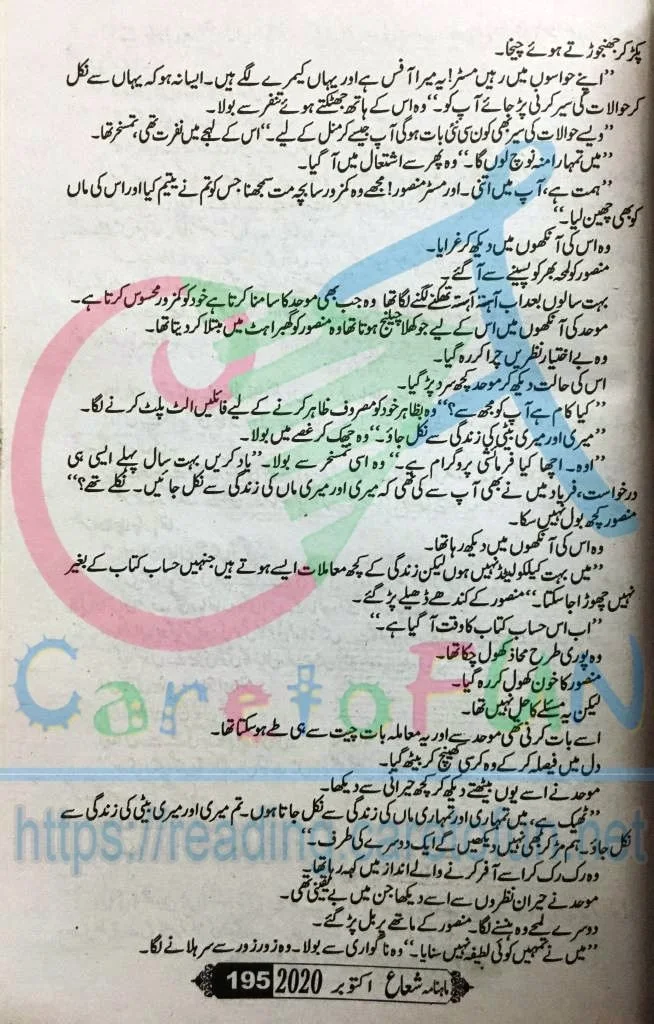 پکڑ کر جھنجوڑتے ہوئے چیخا۔
”اپنے حواسوں میں رہیں مسٹر! یہ میرا آفس ہے اور یہاں کیمرے لگے ہیں۔ ایسا نہ ہو کہ یہاں سے نکل
کر حوالات کی سیر کرنی پڑ جائے آپ کو۔“ وہ اس کے ہاتھ جھٹکتے ہوئے تنفر سے بولا۔
”ویسے حوالات کی سیر بھی کون سی نئی بات ہوگی آپ جیسے کرمنل کے لیے۔“ اس کے لہجے میں نفرت تھی، تمسخر تھا۔
”میں تمہارا منہ نوچ لوں گا۔“ وہ پھر سے اشتعال میں آگیا۔
”ہمت ہے، آپ میں اتنی۔ اور مسٹر منصور! مجھے وہ کمزور سا بچہ مت سمجھنا جس کو تم نے یتیم کیا اور اس کی ماں
کو بھی چھین لیا۔“
وہ اس کی آنکھوں میں دیکھ کر غرایا۔
منصور کو لمحہ بھر کو پسینے سے آگئے۔
بہت سالوں بعد اب آہستہ آہستہ تھکنے لگنے لگا تھا وہ جب بھی موحد کا سامنا کرتا ہے خود کو کمزور محسوس کرتا ہے۔
موحد کی آنکھوں میں اس کے لیے جو کھلا چیلنج ہوتا تھا وہ منصور کو گھبراہٹ میں مبتلا کر دیتا تھا۔
وہ بے اختیار نظریں چرا کر رہ گیا۔
اس کی حالت دیکھ کر موحد کچھ سرد پڑ گیا۔
”کیا کام ہے آپ کو مجھ سے؟“ وہ بظاہر خود کو مصروف ظاہر کرنے کے لیے فائلیں الٹ پلٹ کرنے لگا۔
”میری اور میری بیٹی کی زندگی سے نکل جاؤ۔“ وہ جھک کر غصے میں بولا۔
”اوہ۔ اچھا کیا فرمائشی پروگرام ہے۔“ وہ اسی تمسخر سے بولا۔ ”یاد کریں بہت سال پہلے ایسی ہی
درخواست، فریاد میں نے بھی آپ سے کی تھی کہ میری اور میری ماں کی زندگی سے نکل جائیں۔ نکلے تھے؟“
منصور کچھ بول نہیں سکا۔
وہ اس کی آنکھوں میں دیکھ رہا تھا۔
”میں بہت کیلکولیٹڈ نہیں ہوں لیکن زندگی کے کچھ معاملات ایسے ہوتے ہیں جنہیں حساب کتاب کے بغیر
نہیں چھوڑا جاسکتا۔“ منصور کے کندھے ڈھیلے پڑ گئے۔
”اب اس حساب کتاب کا وقت آگیا ہے۔“
وہ پوری طرح محاذ کھول چکا تھا۔
منصور کا خون کھول کر رہ گیا۔
لیکن یہ مسئلے کا حل نہیں تھا۔
اسے بات کرنی تھی موحد سے اور یہ معاملہ بات چیت سے ہی طے ہوسکتا تھا۔
دل میں فیصلہ کر کے وہ کرسی کھینچ کر بیٹھ گیا۔
موحد نے اسے یوں بیٹھتے دیکھ کر کچھ حیرانی سے دیکھا۔
”ٹھیک ہے، میں تمہاری اور تمہاری ماں کی زندگی سے نکل جاتا ہوں۔ تم میری اور میری بیٹی کی زندگی سے
نکل جاؤ۔ ہم مڑ کر کبھی نہیں دیکھیں گے ایک دوسرے کی طرف۔“
وہ رک رک کر اسے آفر کرنے والے انداز میں کہہ رہا تھا۔
موحد نے حیران نظروں سے اسے دیکھا جن میں بے یقینی تھی۔
دوسرے لمحے وہ ہنسنے لگا۔ منصور کے ماتھے پر بل پڑ گئے۔
”میں نے تمہیں کوئی لطیفہ نہیں سنایا۔“ وہ ناگواری سے بولا۔ وہ زور زور سے سر ہلانے لگا۔
CaretoFUN
https://reading.caretofun.net
ماہنامہ شعاع اکتوبر 2020 195